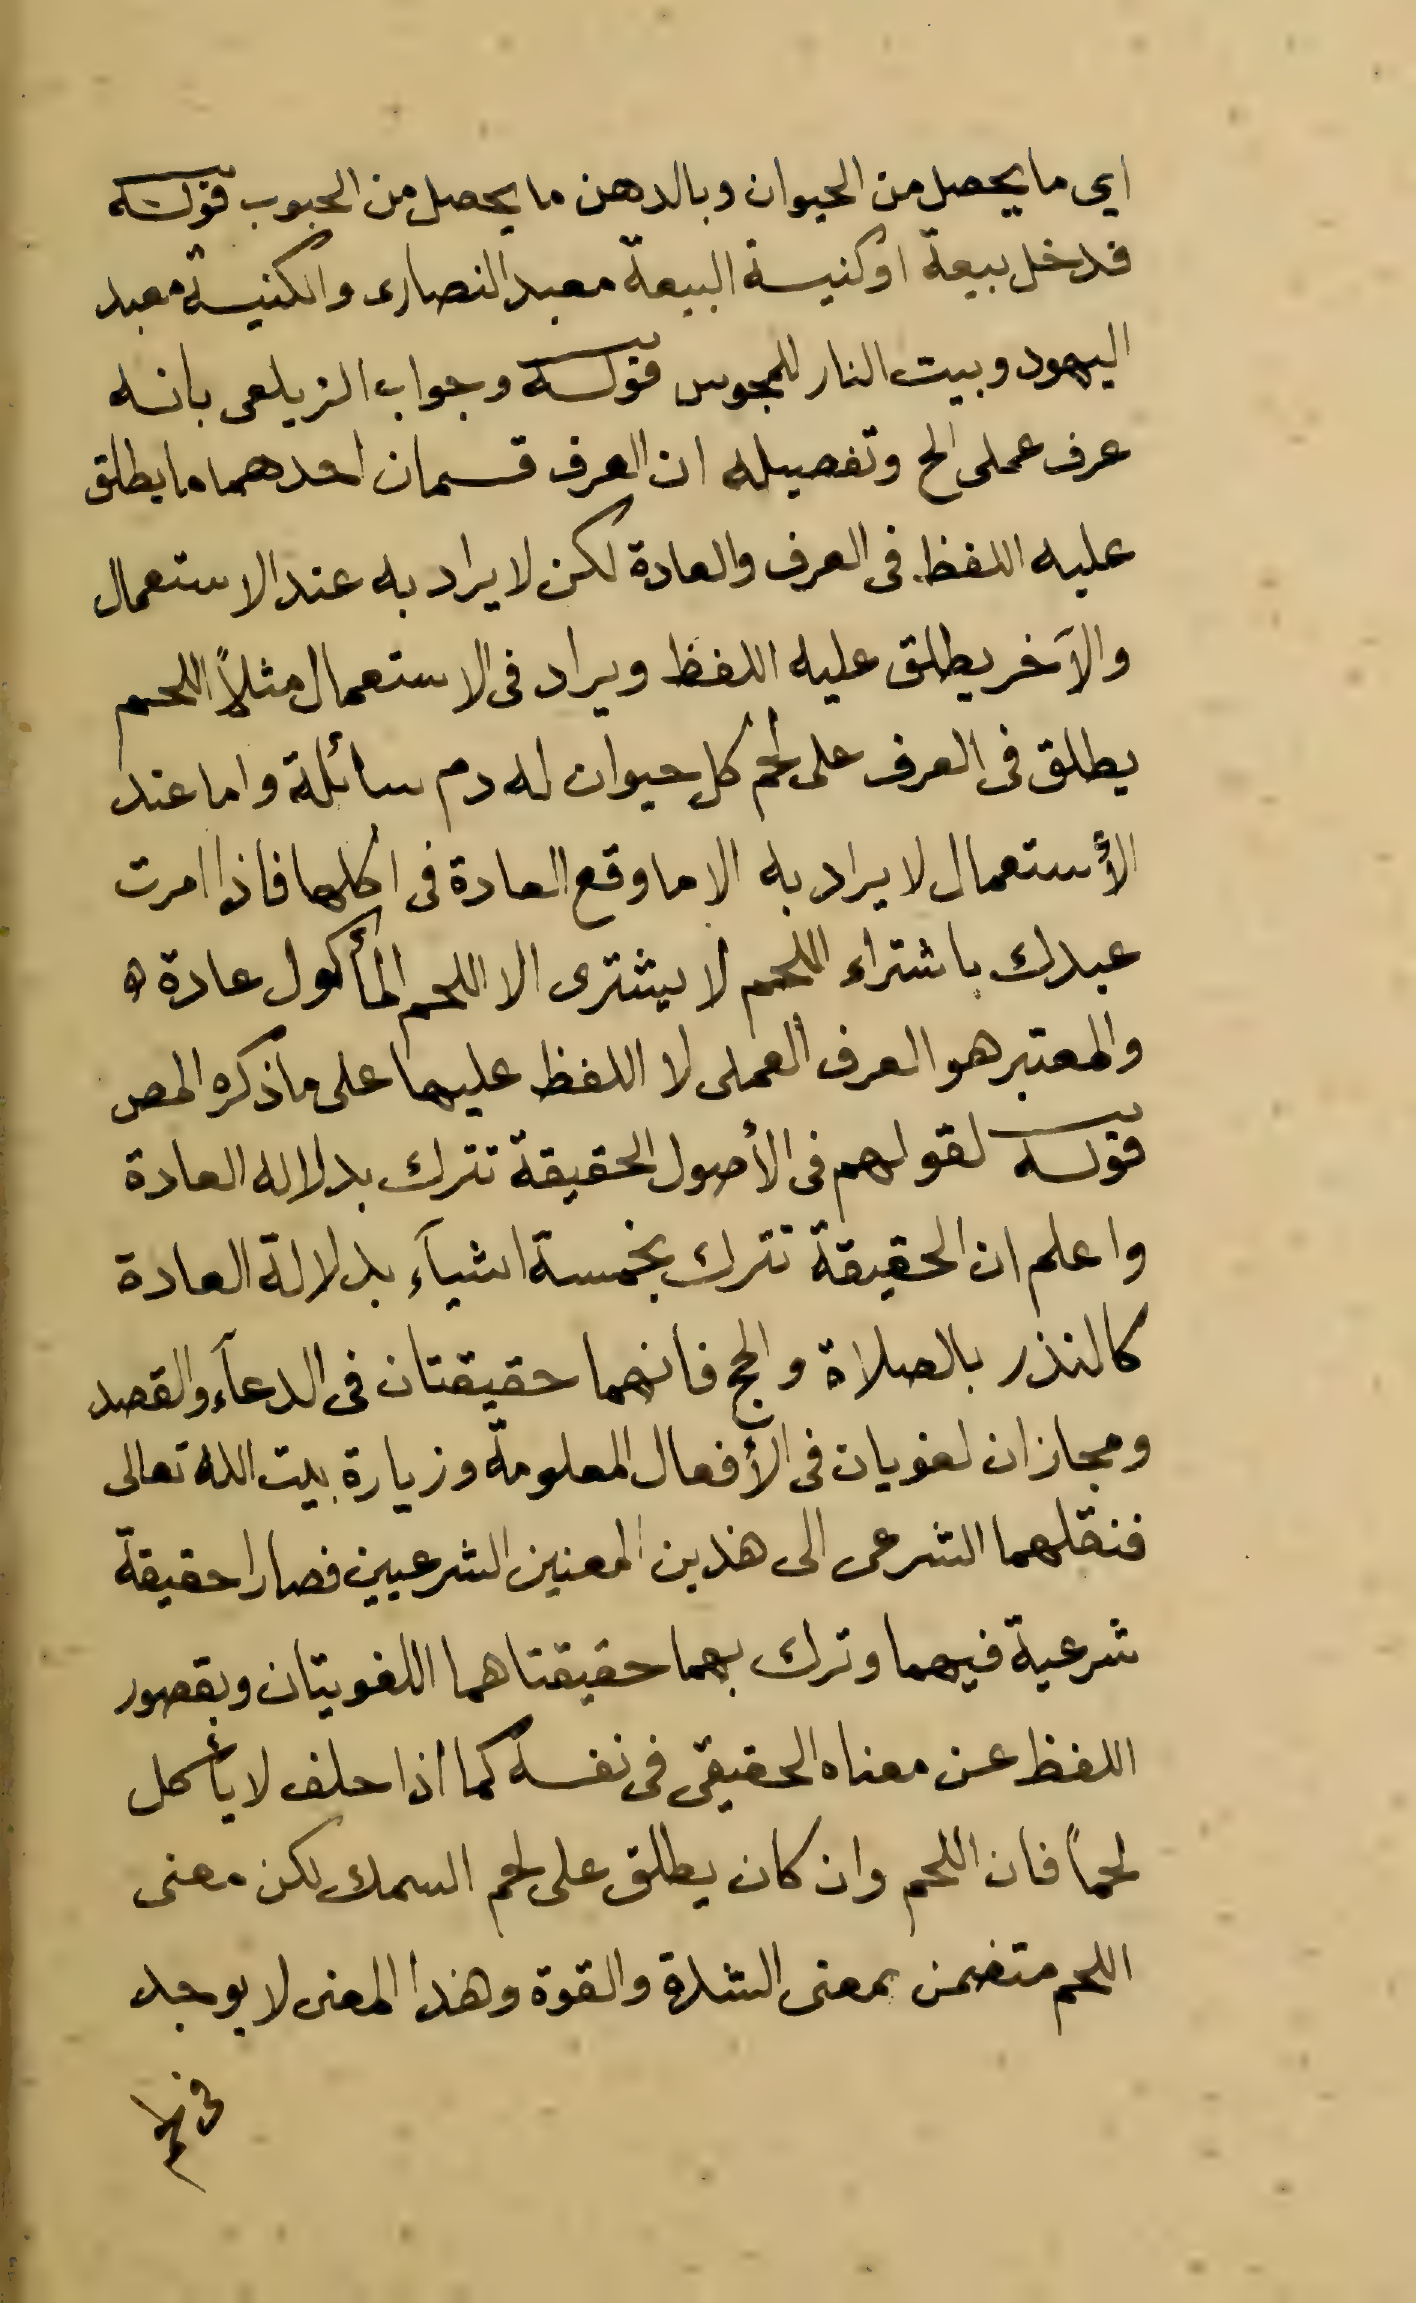 اي ما يحصل من الحيوان وبالدهن ما يحصل من الحبوب قوله
فدخل بيعة او كنيسة البيعة معبد النصارى والكنيسة معبد
اليهود وبيت النار للمجوس قوله وجواب الزيلعى بانه
عرف عملى الخ وتفصيله ان العرف قسمان احدهما ما يطلق
عليه اللفظ فى العرف والعادة لكن لا يراد به عند الاستعمال
والآخر يطلق عليه اللفظ ويراد فى الاستعمال مثلاً اللحم
يطلق فى العرف على لحم كل حيوان له دم سائلة واما عند
الأستعمال لا يراد به الا ما وقع العادة فى اكلها فاذا امرت
عبدك باشتراء اللحم لا يشترى الا اللحم المأكول عادة ه
والمعتبر هو العرف العملى لا اللفظ عليهما على ما ذكره المص
قوله لقولهم فى الأصول الحقيقة تترك بدلاله العادة
واعلم ان الحقيقة تترك بخمسة اشيآء بدلالة العادة
كالنذر بالصلاة والحج فانهما حقيقتان فى الدعآء والقصد
ومجازان لغويان فى الأفعال المعلومة وزيارة بيت الله تعالى
فنقلهما الشرعى الى هذين المعنين الشرعيين فصارا حقيقة
شرعية فيهما وترك بهما حقيقتاهما اللغويتان وبقصور
اللفظ عن معناه الحقيقى فى نفسه كما اذا حلف لا يأكل
لحماً فان اللحم وان كان يطلق على لحم السمك لكن معنى
اللحم متضمن بمعنى الشدة والقوة وهذا المعنى لا يوجد
فى لحم